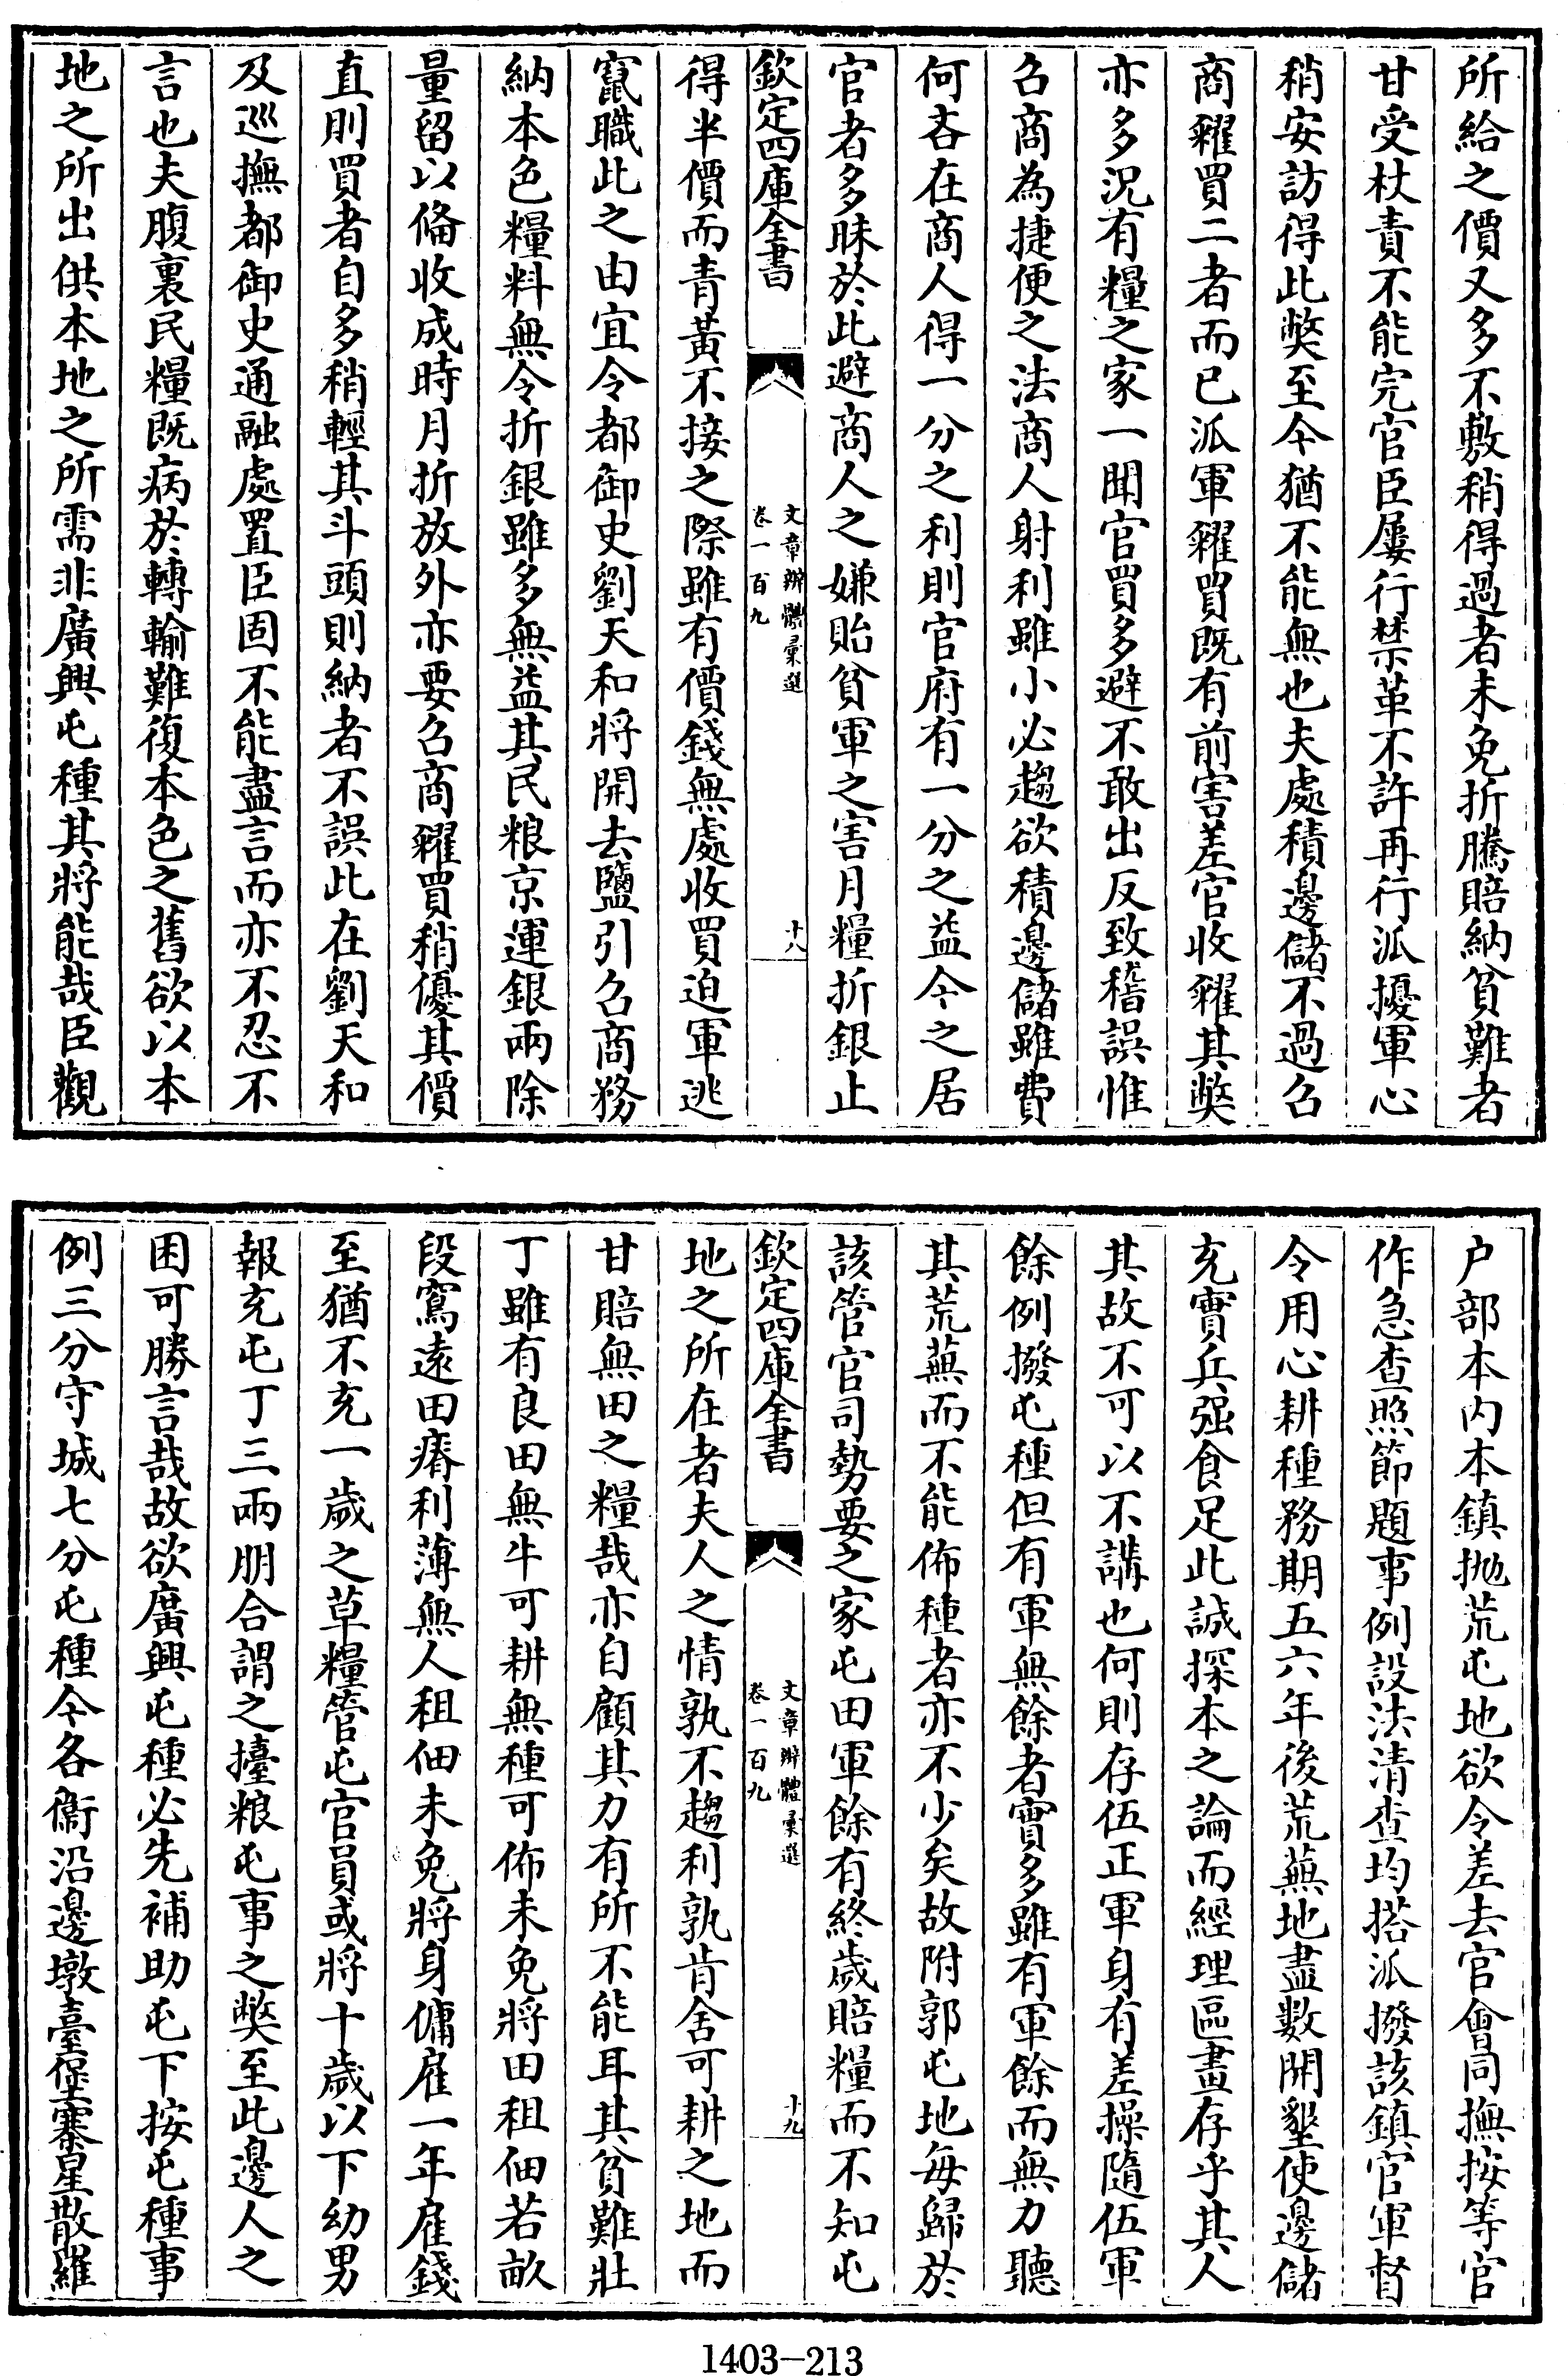 所給之價又多不敷稍得過者未免折騰賠納貧難者
甘受杖責不能完官臣屢行禁革不許再行泒擾軍心
稍安訪得此獘至今猶不能無也夫處積邊儲不過召
商糴買二者而已泒軍糴買既有前害差官收糴其獘
亦多況有糧之家一聞官買多避不敢出反致稽誤惟
召商為捷便之法商人射利雖小必趨欲積邊儲雖費
何吝在商人得一分之利則官府有一分之益今之居
官者多昧於此避商人之嫌貽貧軍之害月糧折銀止
欽定四庫全書
文章辨體彙選
卷一百九
十八
得半價而青黃不接之際雖有價錢無處收買迫軍逃
竄職此之由宜令都御史劉天和將開去鹽引召商務
納本色糧料無令折銀雖多無益其民粮京運銀兩除
量留以俻收成時月折放外亦要召商糴買稍優其價
直則買者自多稍輕其斗頭則納者不誤此在劉天和
及巡撫都御史通融處置臣固不能盡言而亦不忍不
言也夫腹裏民糧既病於轉輸難復本色之舊欲以本
地之所出供本地之所需非廣興屯種其將能哉臣觀
户部本内本鎮抛荒屯地欲令差去官會同撫按等官
作急查照節題事例設法清查均搭泒撥該鎮官軍督
令用心耕種務期五六年後荒蕪地盡數開墾使邊儲
充實兵强食足此誠探本之論而經理區畫存乎其人
其故不可以不講也何則存伍正軍身有差操隨伍軍
餘例撥屯種但有軍無餘者實多雖有軍餘而無力聽
其荒蕪而不能佈種者亦不少矣故附郭屯地每歸於
該管官司勢要之家屯田軍餘有終歲賠糧而不知屯
欽定四庫全書
文章辨體彙選
卷一百九
十九
地之所在者夫人之情孰不趨利孰肯舍可耕之地而
甘賠無田之糧哉亦自顧其力有所不能耳其貧難壯
丁雖有良田無牛可耕無種可佈未免將田租佃若畝
段寫遠田瘠利薄無人租佃未免將身傭雇一年雇錢
至猶不充一歲之草糧管屯官員或將十歲以下幼男
報充屯丁三兩朋合謂之擡粮屯事之獘至此邊人之
困可勝言哉故欲廣興屯種必先補助屯下按屯種事
例三分守城七分屯種今各衞沿邊墩臺堡寨星散羅
1403-213